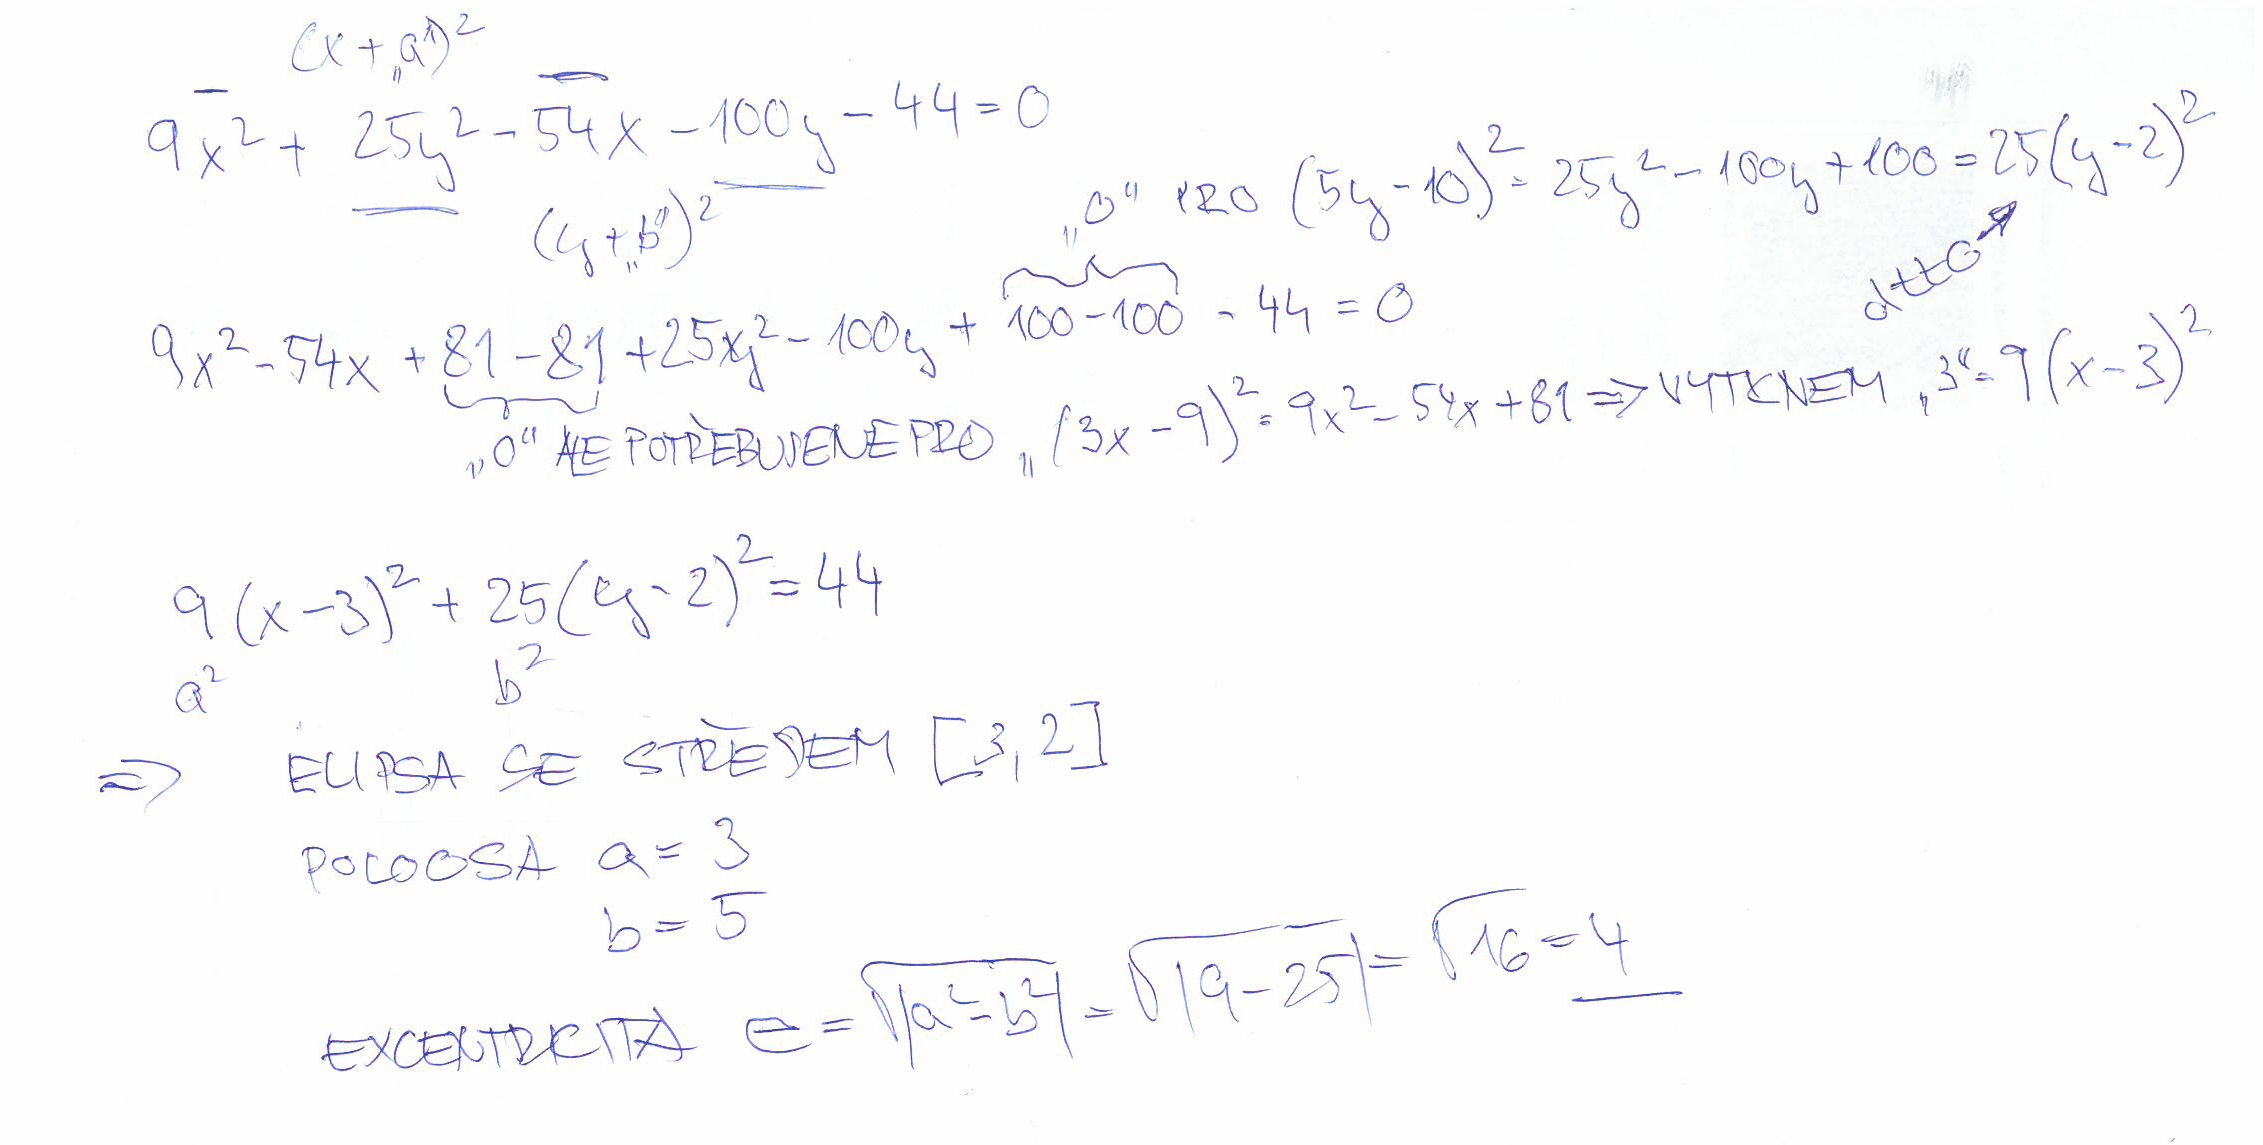 (x + „a“)²
9x² + 25y² - 54x - 100y - 44 = 0
(y + „b“)²
„0“ PRO (5y - 10)² = 25y² - 100y + 100 = 25(y - 2)²
dtto
9x² - 54x + 81 - 81 + 25y² - 100y + 100 - 100 - 44 = 0
„0“ ALE POTŘEBUJEME PRO „(3x - 9)² = 9x² - 54x + 81 => VYTKNEM „3“ = 9(x - 3)²
9(x - 3)² + 25(y - 2)² = 44
a² b²
=> ELIPSA SE STŘEDEM [3, 2]
POLOOSA a = 3
b = 5
EXCENTRICITA e = √|a² - b²| = √|9 - 25| = √16 = 4